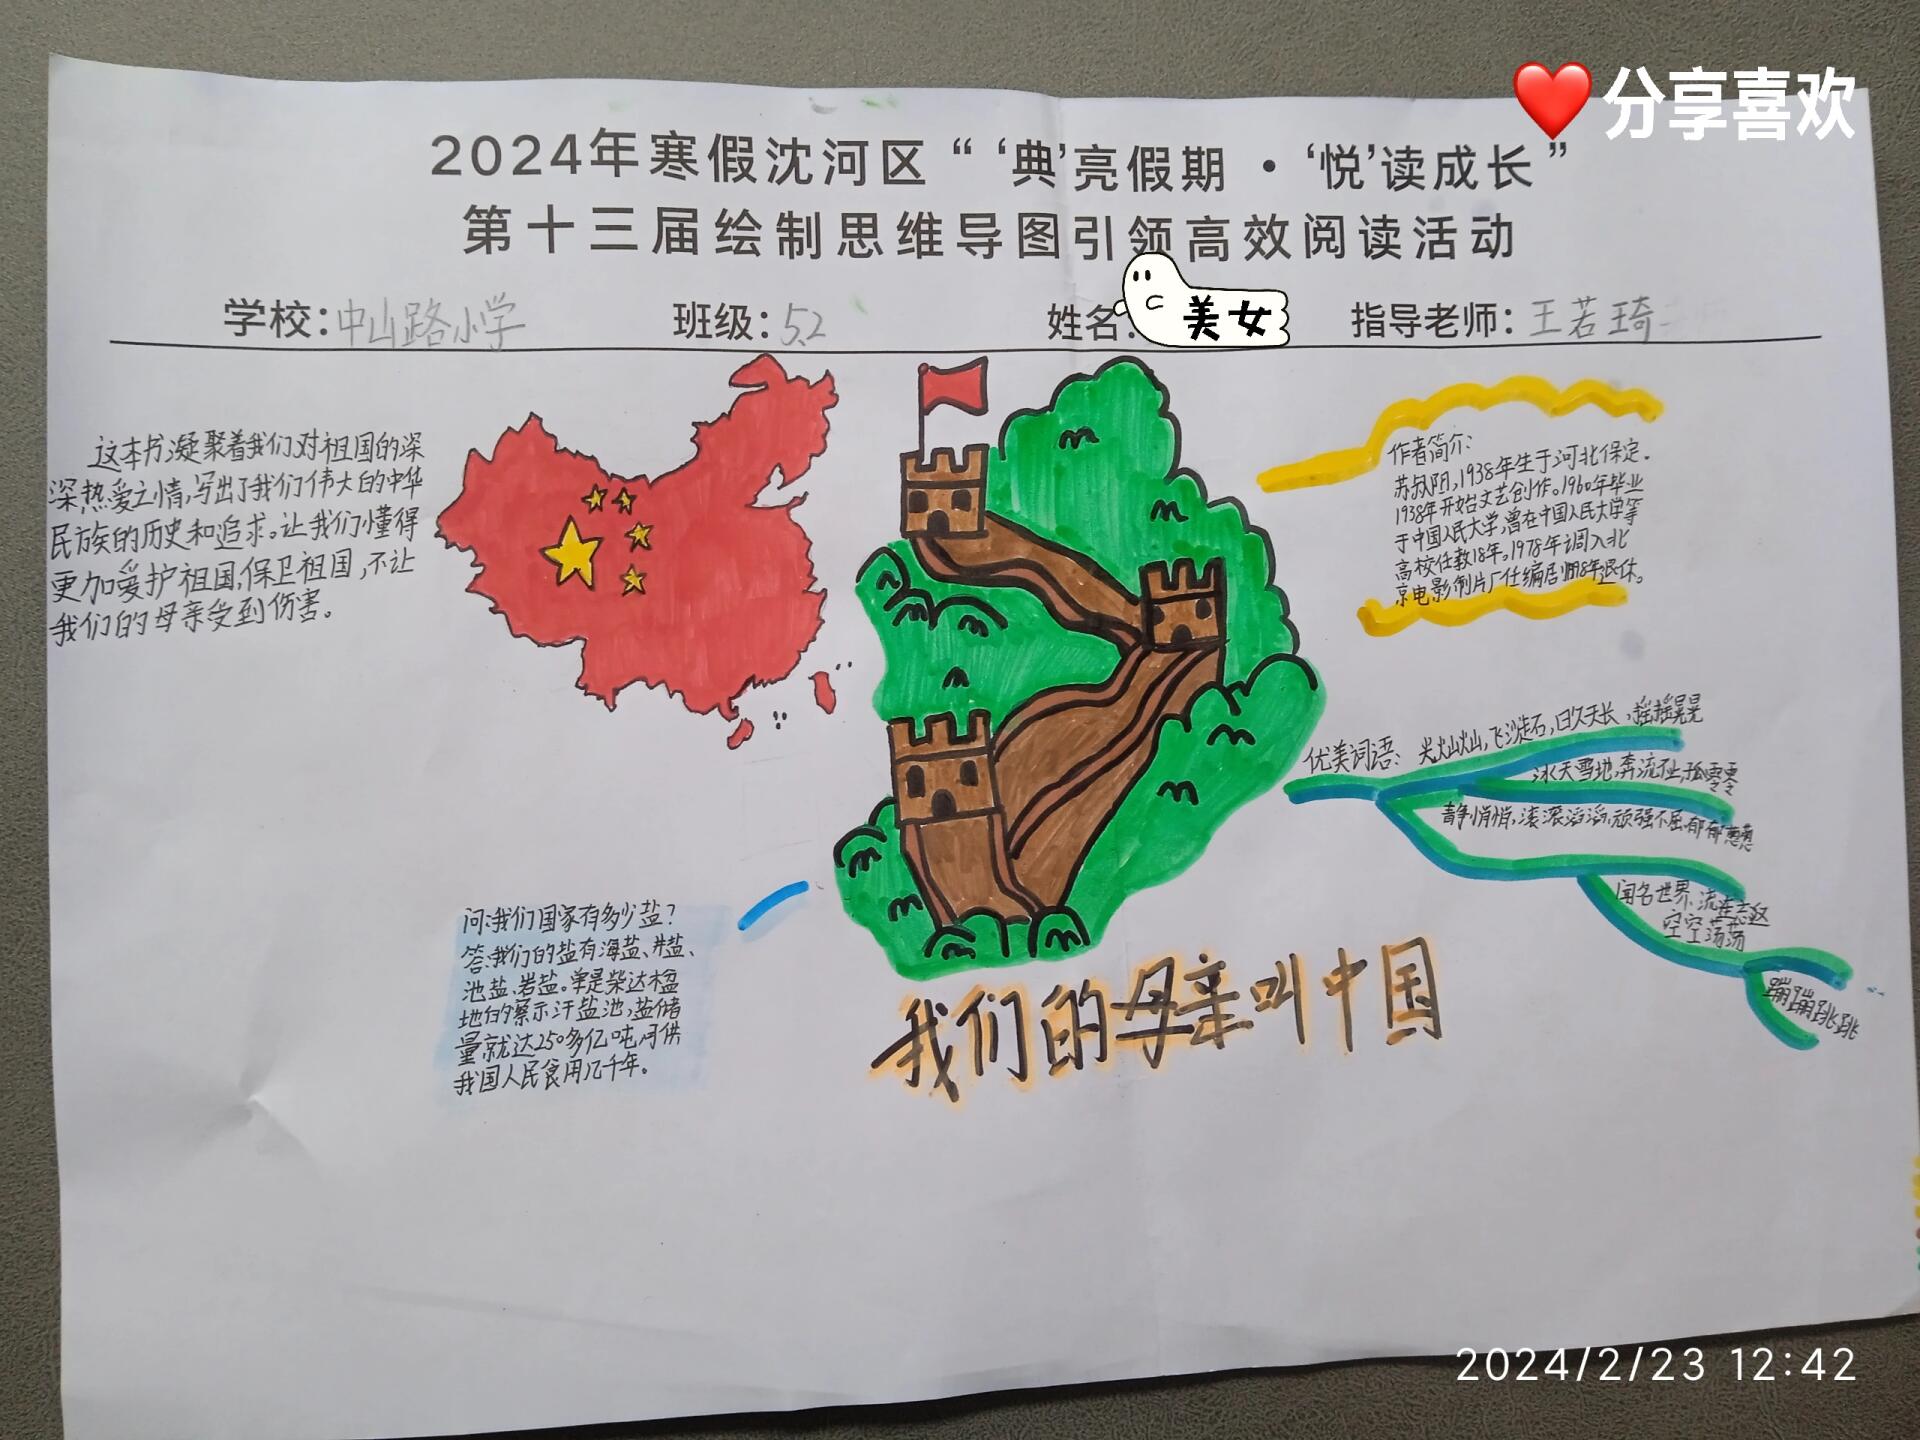 分享喜欢
2024年寒假沈河区“‘典’亮假期·‘悦’读成长”
第十三届绘制思维导图引领高效阅读活动
学校：中山路小学 班级：5.2 姓名： 美女 指导老师：王若琦
这本书凝聚着我们对祖国的深
深热爱之情，写出了我们伟大的中华
民族的历史和追求。让我们懂得
更加爱护祖国，保卫祖国，不让
我们的母亲受到伤害。
作者简介：
苏叔阳，1938年生于河北保定。
1938年开始文艺创作。1960年毕业
于中国人民大学，曾在中国人民大学等
高校任教18年。1978年调入北
京电影制片厂任编居1998年退休。
优美词语： 光灿灿，飞沙走石，日久天长，摇摇晃晃
冰天雪地，奔流不止，孤零零
静悄悄，滚滚滔滔，顽强不屈，郁郁葱葱
闻名世界，流连忘返
空空荡荡
蹦蹦跳跳
问：我们国家有多少盐？
答：我们的盐有海盐、井盐、
池盐、岩盐。单是柴达木盆
地的察尔汗盐池，盐储
量就达250多亿吨，可供
我国人民食用几千年。
我们的母亲叫中国
2024/2/23 12:42